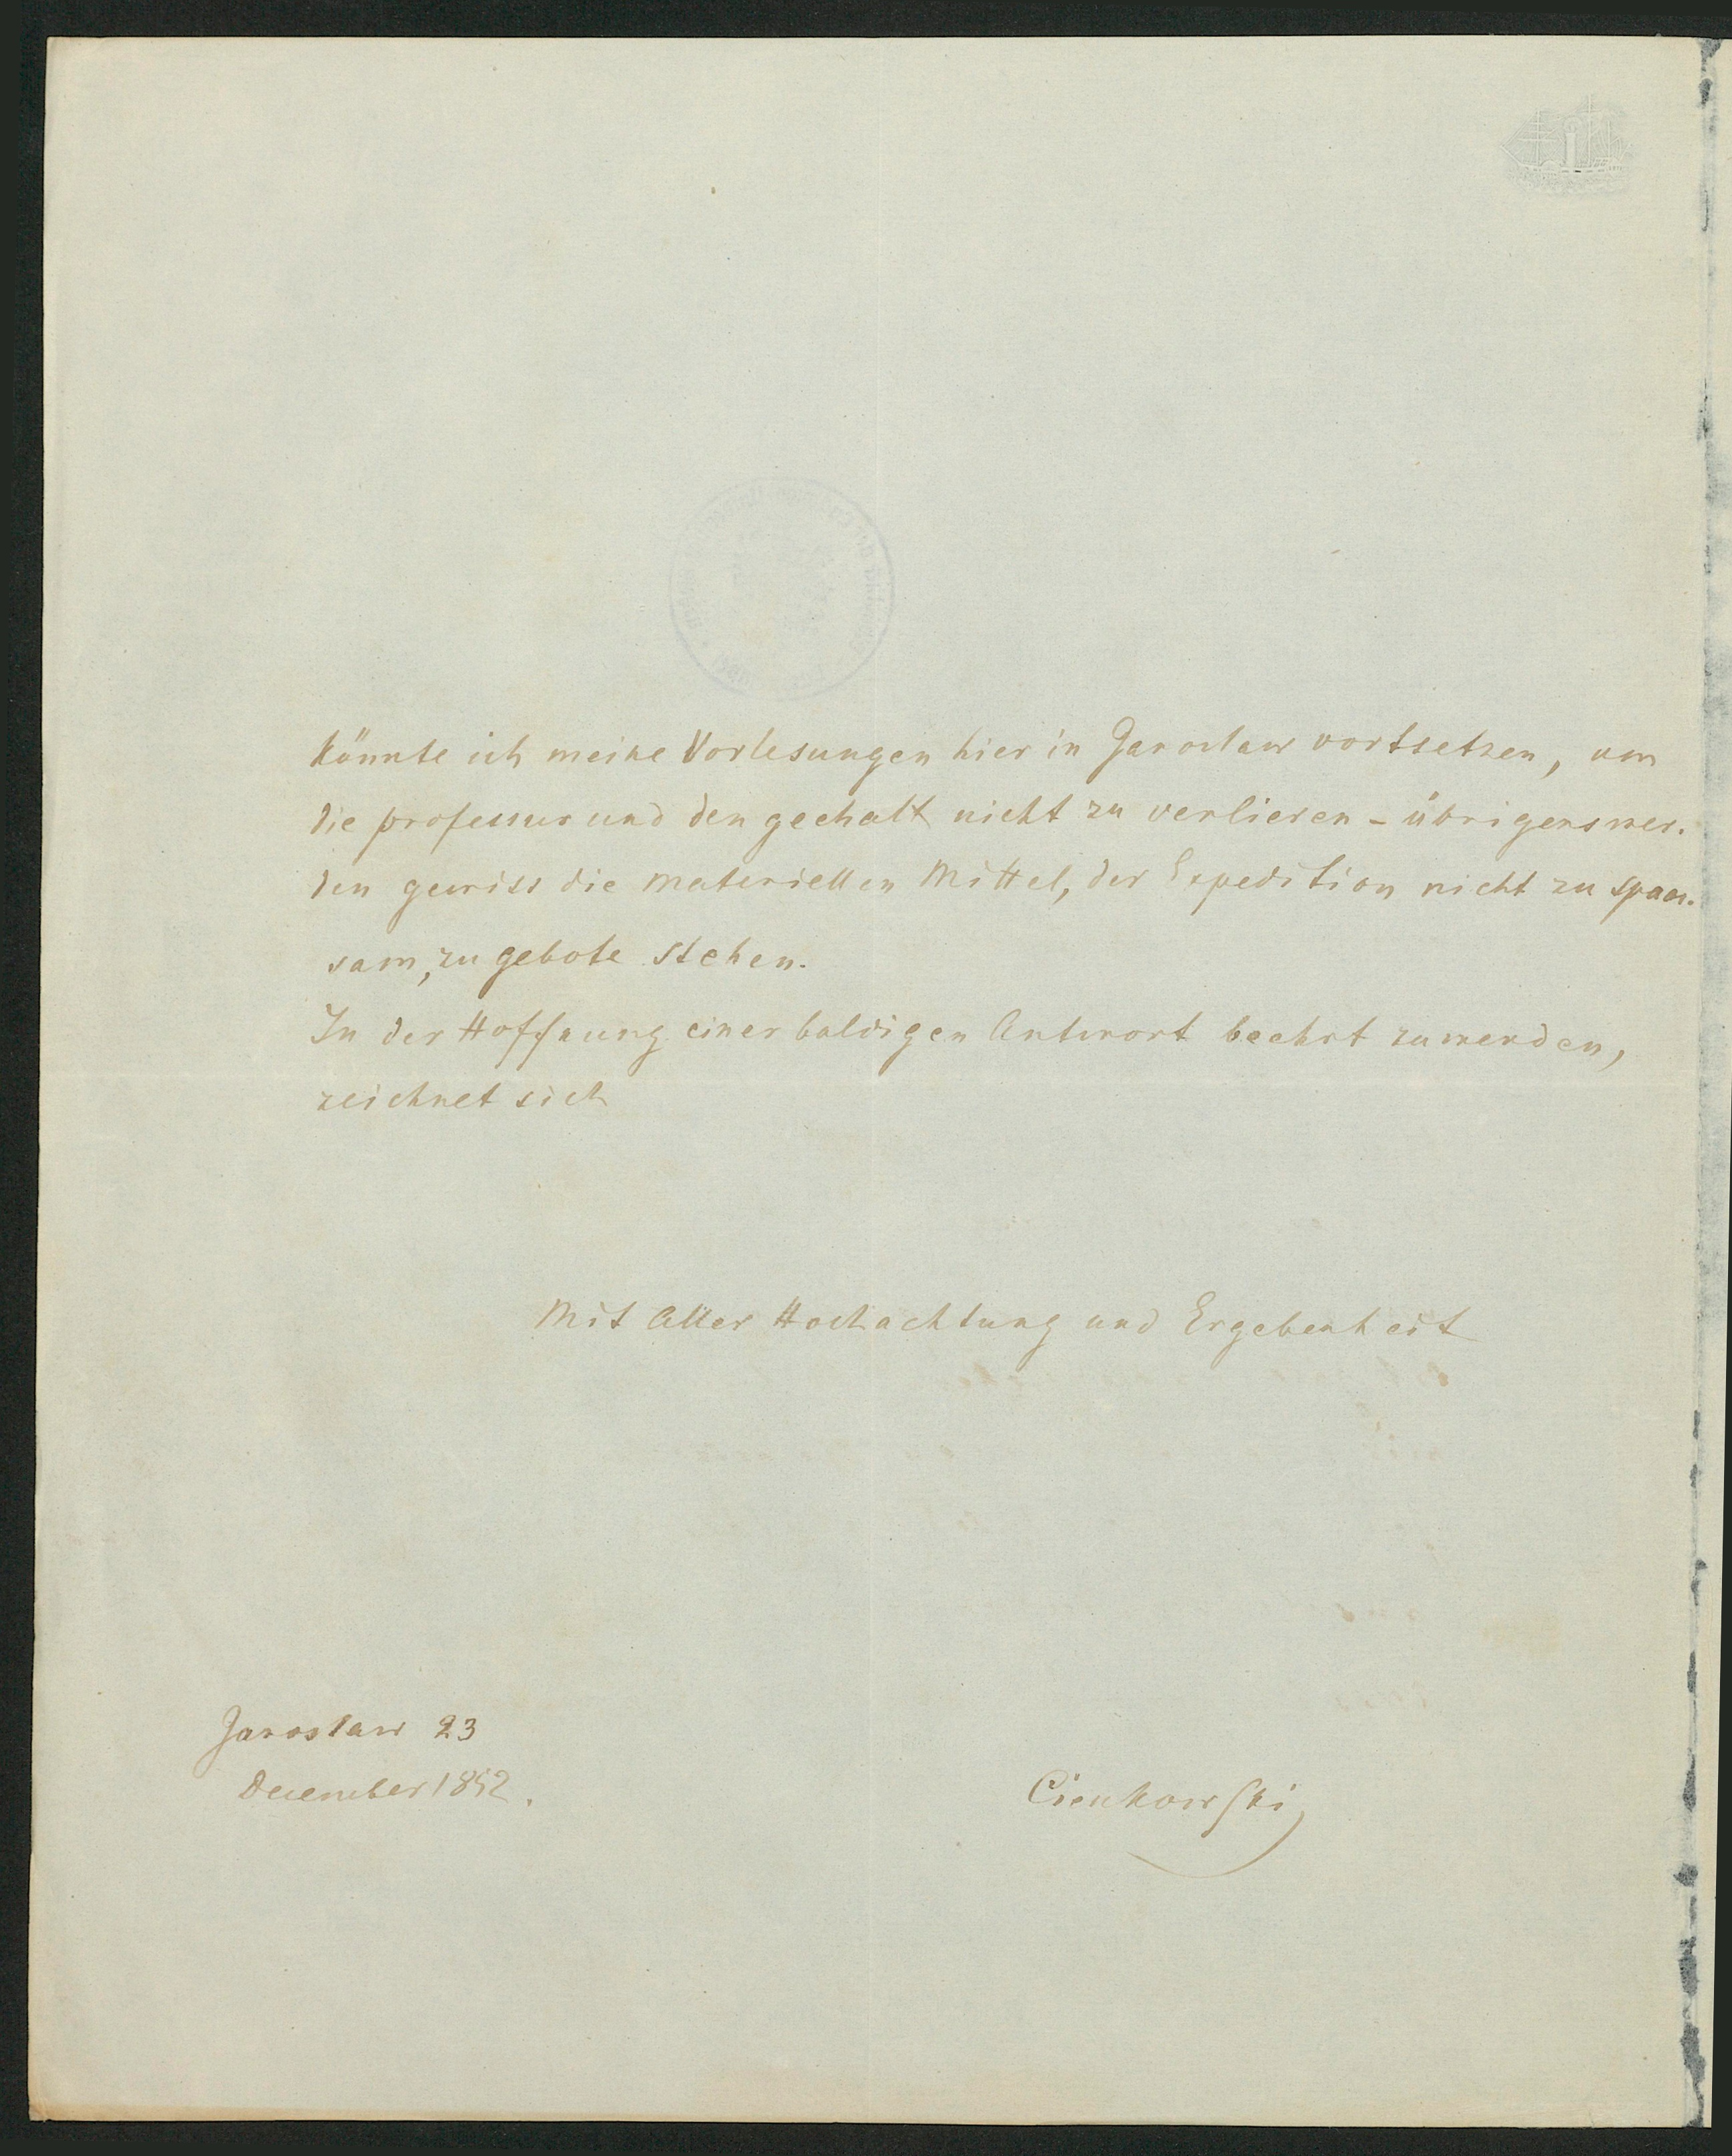 könnte ich meine Vorlesungen hier in Jaroslaw vortsetzen, um
die professur und den geehalt nicht zu verlieren - übrigens wer.
den gewiss die materiellen Mittel, der Expedition nicht zu spaar.
sam, zu gebote stehen.
In der Hoffnung einer baldigen Antwort beehrt zu werden,
zeichnet sich
Mit Aller Hochachtung und Ergebenheit
Jaroslaw 23
December 1852.
Cienkowski